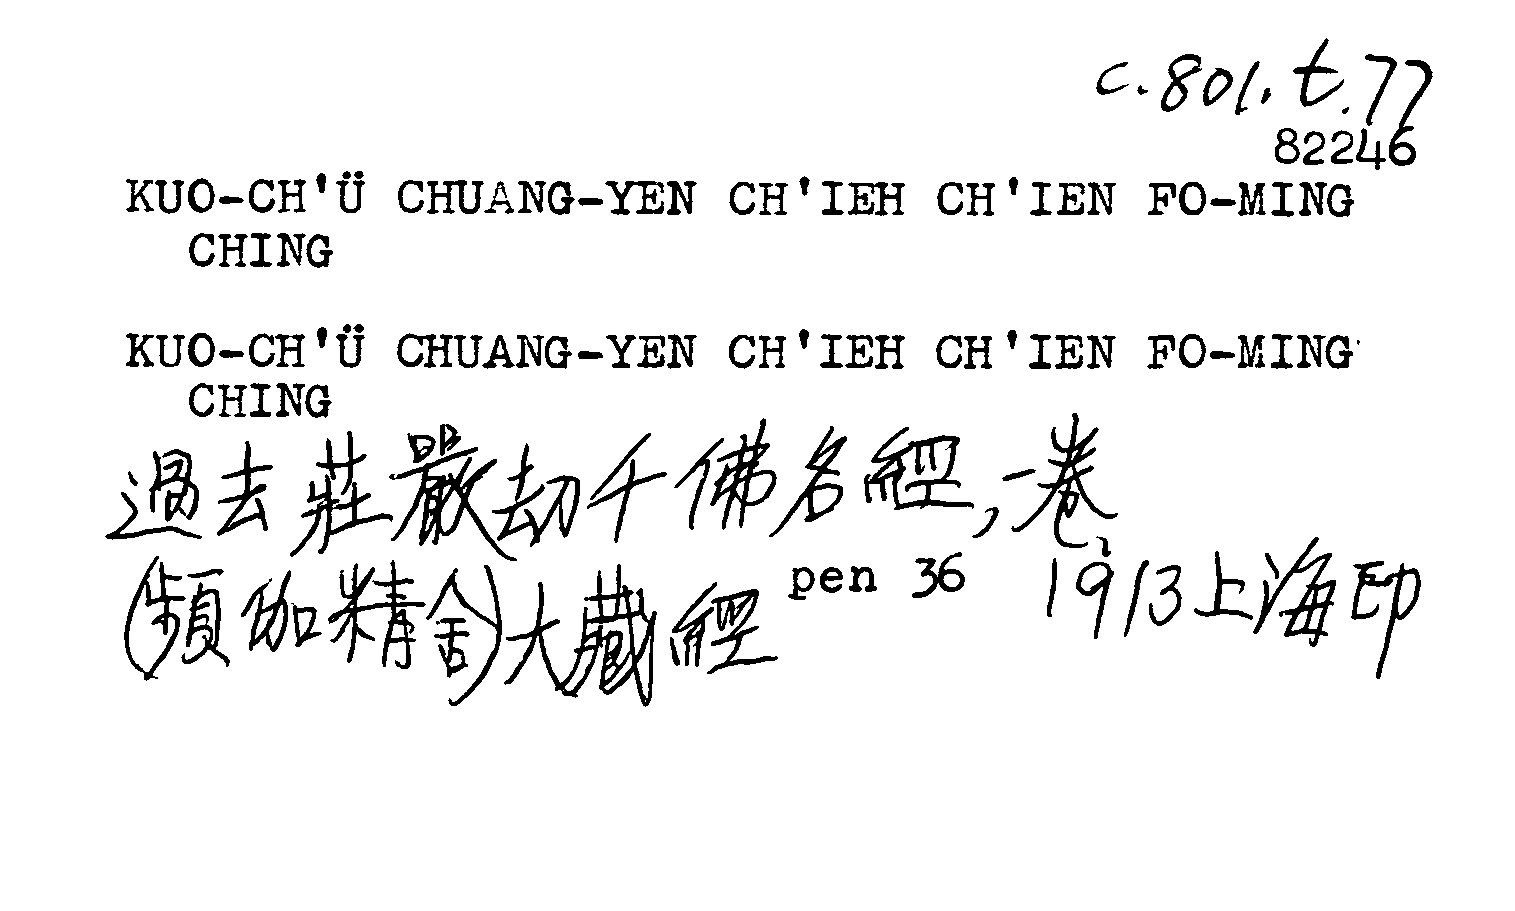 c.801.t.77
82246
KUO-CH'Ü CHUANG-YEN CH'IEH CH'IEN FO-MING
CHING
KUO-CH'Ü CHUANG-YEN CH'IEH CH'IEN FO-MING
CHING
過去莊嚴刧千佛名經,一卷
(頻伽精舍)大藏經 pen 36 1913上海印